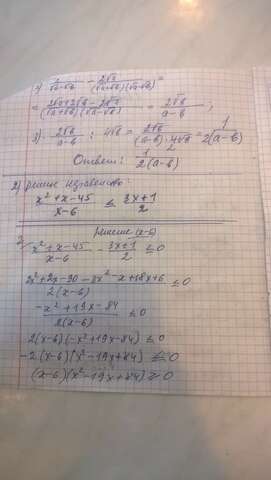 1) 2/(√a-√b) - 2√a/((√a+√b)(√a-√b)) =
= (2√a+2√b-2√a)/((√a+√b)(√a-√b)) = 2√b/(a-b) ;
2). 2√b/(a-b) : 4√b = 2√b/((a-b)·4√b) = 1/(2(a-b))
Ответ: 1/(2(a-b))
2) решите неравенство:
(x²+x-45)/(x-6) ≤ (3x+1)/2
решение (x-6)
(x²+x-45)/(x-6) - (3x+1)/2 ≤ 0
(2x²+2x-90-3x²-x+18x+6)/(2(x-6)) ≤ 0
(-x²+19x-84)/(2(x-6)) ≤ 0
2(x-6)(-x²+19x-84) ≤ 0
-2(x-6)(x²-19x+84) ≤ 0
(x-6)(x²-19x+84) ≥ 0